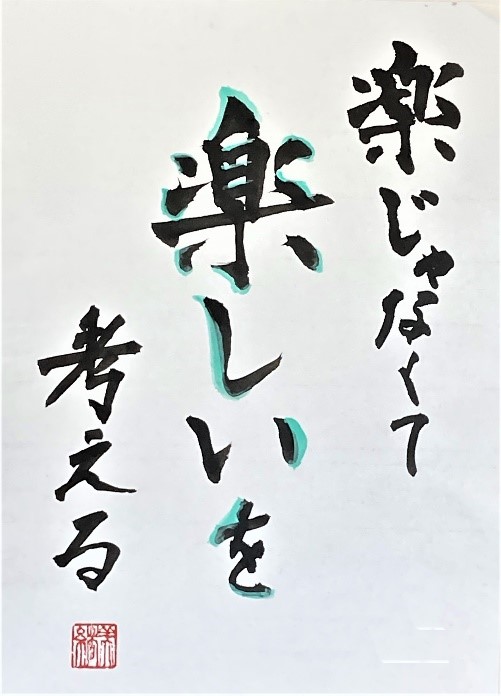 楽じゃなくて
楽しいを
考える